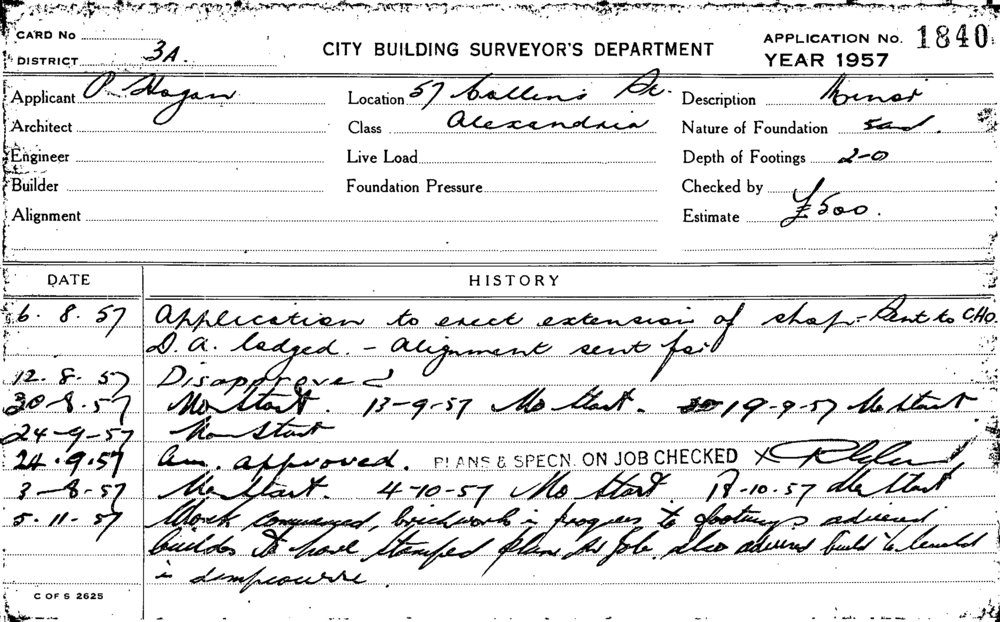 CARD No
DISTRICT 3A.
CITY BUILDING SURVEYOR'S DEPARTMENT
APPLICATION No. 1840
YEAR 1957
Applicant P. Hogan
Location 57 Collins St.
Description Minor
Architect
Class Alexandria
Nature of Foundation Sand.
Engineer
Live Load
Depth of Footings 2-0
Builder
Foundation Pressure
Checked by
Alignment
Estimate £500.
DATE HISTORY
6. 8. 57 Application to erect extension of shop - Sent to C.H.O.
D.A. lodged. - Alignment sent for
12. 8. 57 Disapproved
30-8-57 No Start. 13-9-57 No Start. 19-9-57 No Start
24-9-57 No Start
24.9.57 Am. approved. PLANS & SPECN. ON JOB CHECKED X
3-8-57 No Start. 4-10-57 No Start 18-10-57 No Start
5.11.57 Work commenced, brickwork in progress to footings advised
builder to have stamped plans on job also advised build to
in
C OF S 2625